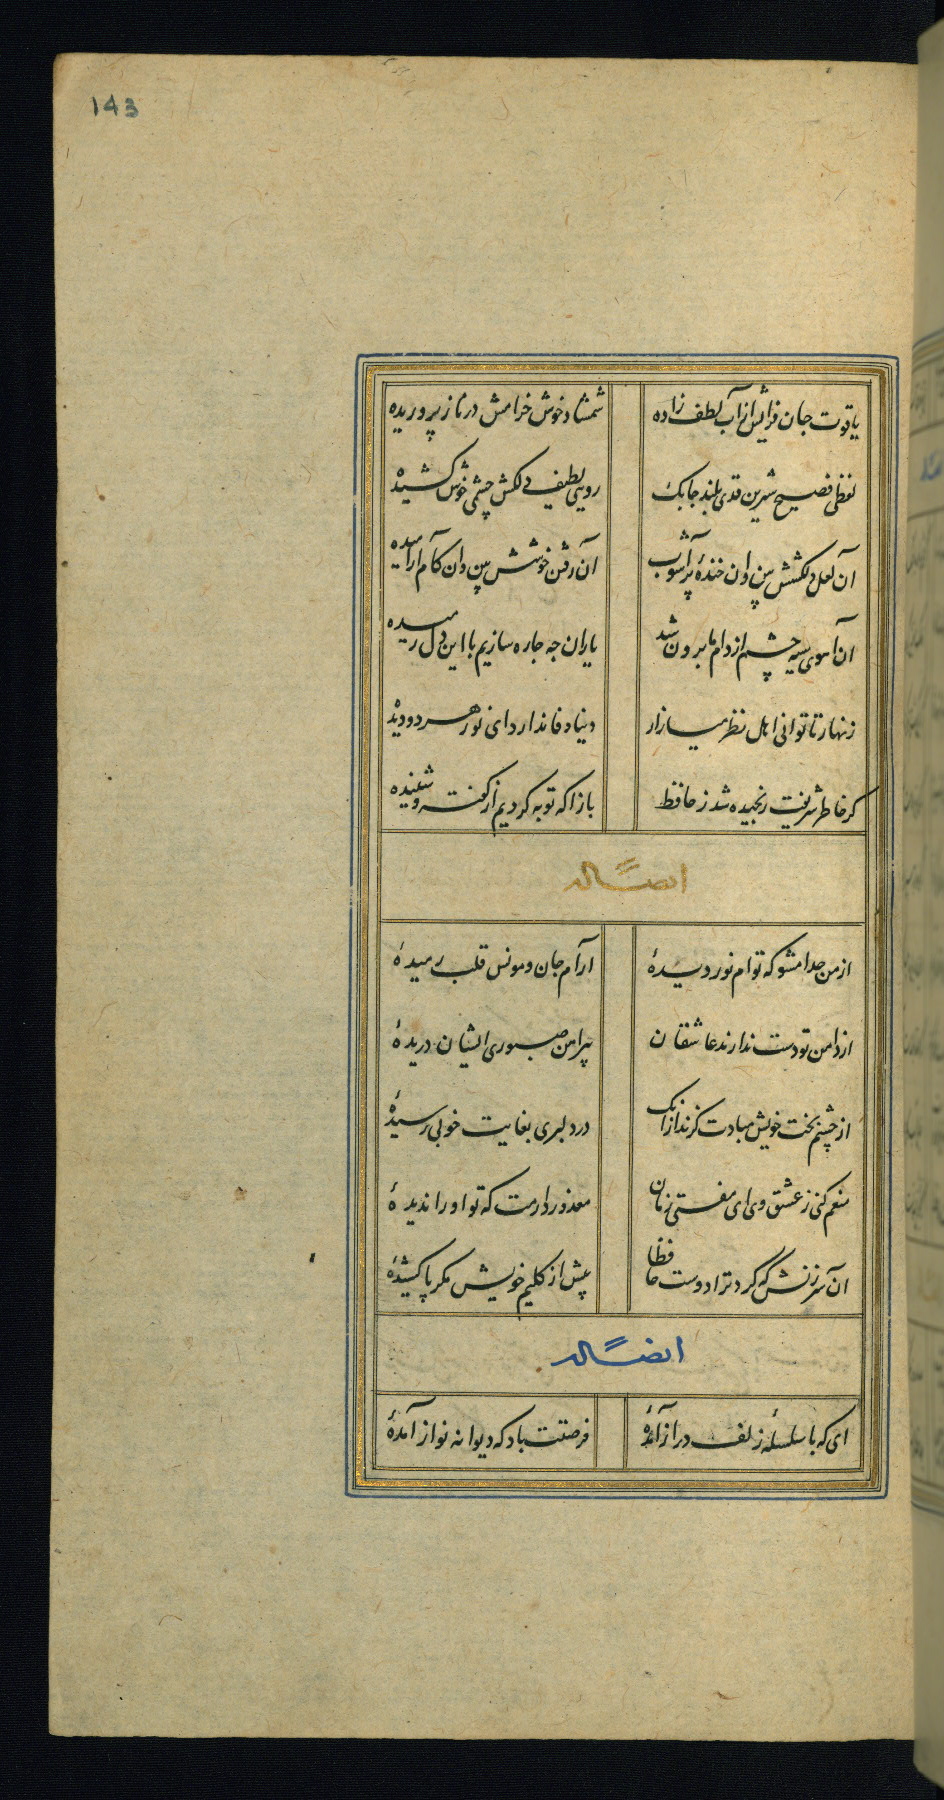 143
یاقوت جان فزایش از آب لطف زاده شمشاد خوش خرامش در ناز پروریده
لفظی فصیح شیرین قدی بلند جابک رویی لطیف دلکش چشمی خوش کشیده
آن لعل دلکشش بین وان خندهٔ پر آشوب آن رفتن خوشش بین وان کام آرامیده
آن آهوی سیه چشم از دام ما برون شد یاران جه جاره سازیم با این دل رمیده
زنهار تا توانی اهل نظر میازار دنیا وفا ندارد ای نور هر دو دیده
کر خاطر شریفت رنجیده شد ز حافظ باز آ که توبه کردیم از کفته و شنیده
ایضاً له
از من جدا مشو که توام نور دیدهٔ آرام جان و مونس قلب رمیدهٔ
از دامن تو دست ندارند عاشقان پیراهن صبوری ایشان دریدهٔ
از چشم بخت خویش مبادت کزند از انک در دلبری بغایت خوبی رسیدهٔ
منعم کنی ز عشق وی ای مفتی زمان معذور دارمت که تو او را ندیدهٔ
آن سرزنش که کرد ترا دوست حافظا پیش از کلیم خویش مکر پا کشیدهٔ
ایضاً له
ای که با سلسلهٔ زلف دراز آمدهٔ فرصتت باد که دیوانه نواز آمدهٔ